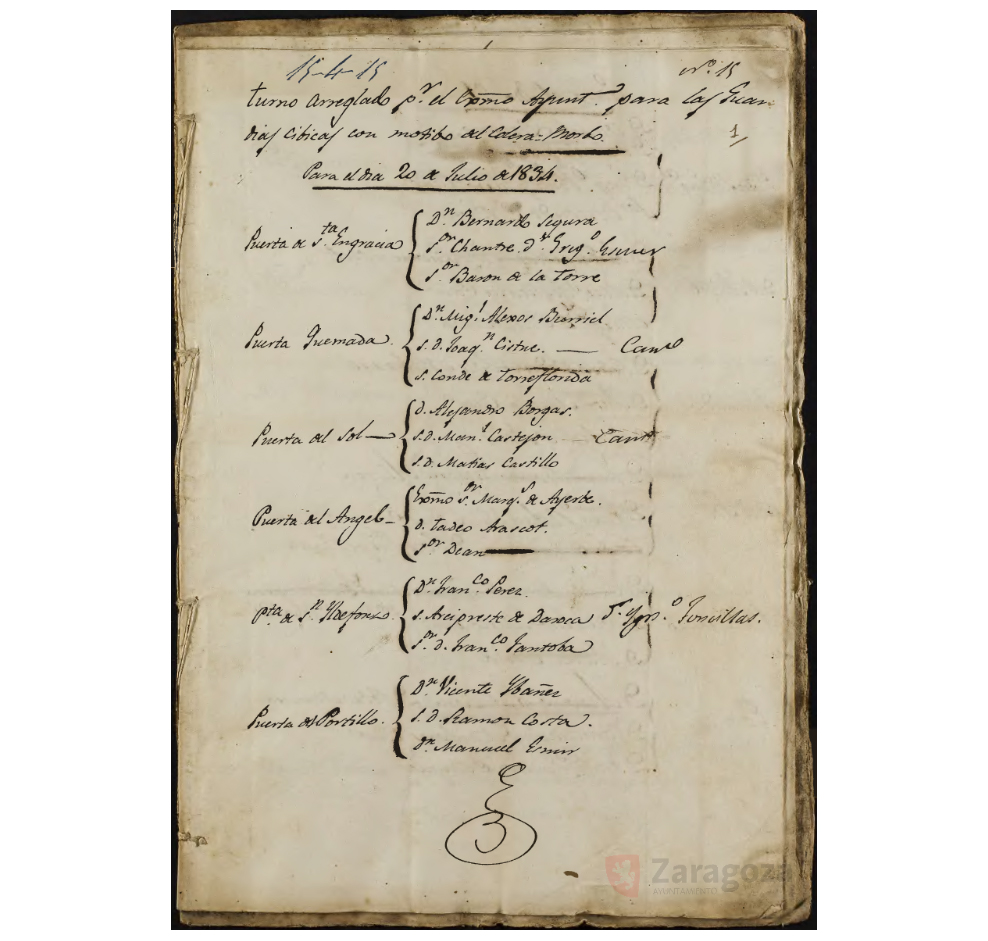 15-4-15
nº. 15
turno arreglado pr. el Exmo Ayuntº. para las Guar
dias Cibicas con motibo del Colera-Morbo
1
Para el dia 20 de Julio de 1834.
Puerta de Sta. Engracia
Dn. Bernardo Segura
Sor. Chantre. Dn. Greg.º
Sor. Baron de la torre
Puerta Quemada
Dn. Migl. Alexos Burriel
S. d. Joaqn. Cistue. — Canº
S. Conde de torreflorida
Puerta del Sol —
d. Alejandro Borgas.
S. d. Manl. Castejon — Canº
S. d. Matias Castillo
Puerta del Angel —
Exmo Sor. Marqs. de Ayerbe.
d. tadeo Arascot.
Sor. Dean
Pta. de Sn. Yldefonso
Dn. Franco. Perez
S. Arcipreste de Daroca
Sor. d. Franco. Yantoba
Puerta del Portillo.
Dn. Vicente Ybañez
S. d. Ramon Costa.
Dn. Manuel
Zaragoza
AYUNTAMIENTO